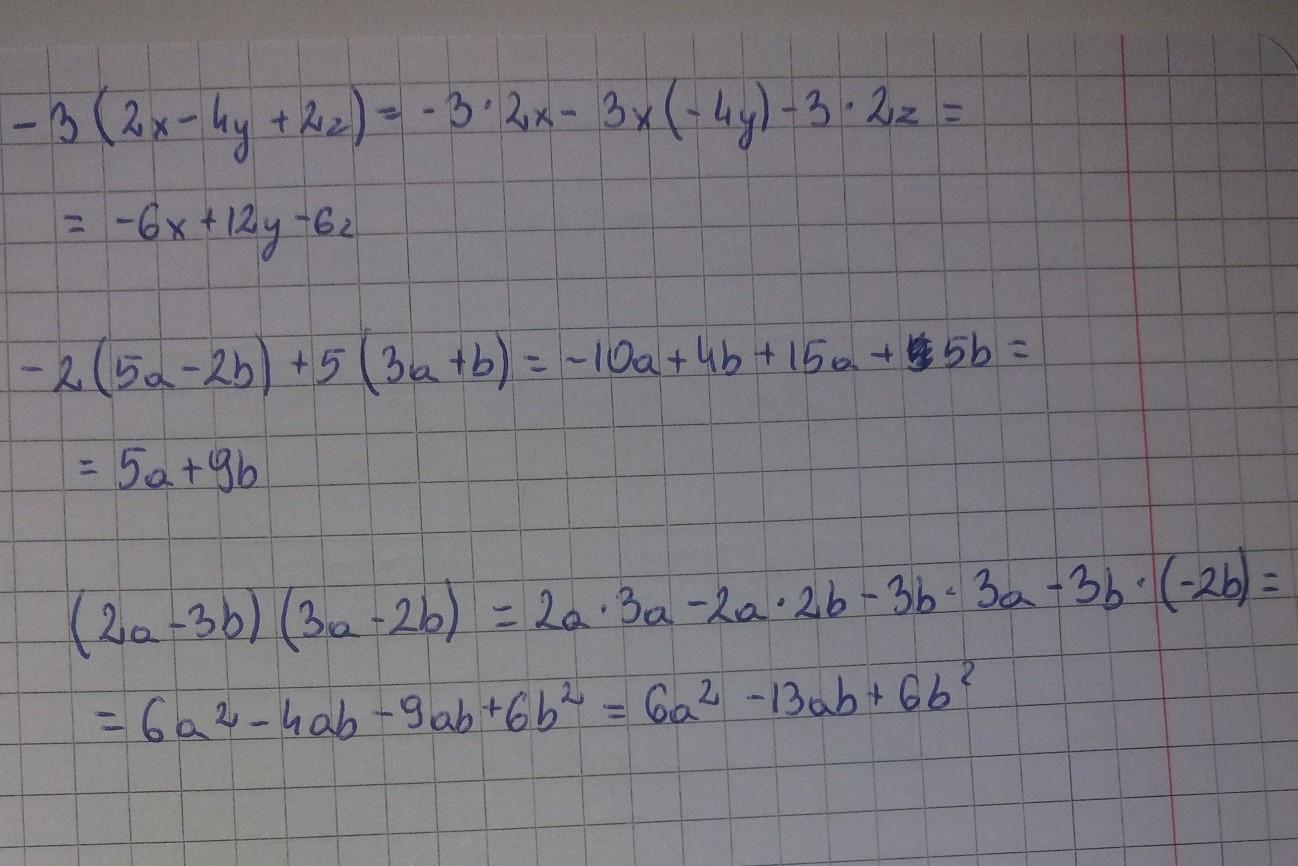 -3(2x-4y+2z)=-3·2x-3x(-4y)-3·2z=
=-6x+12y-6z
-2(5a-2b)+5(3a+b)=-10a+4b+15a+5b=
=5a+9b
(2a-3b)(3a-2b)=2a·3a-2a·2b-3b·3a-3b·(-2b)=
=6a²-4ab-9ab+6b²=6a²-13ab+6b²